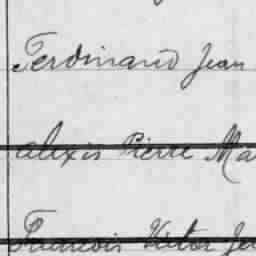 Ferdinand Jean
Alexis Pierre Ma
Francois Victor Je